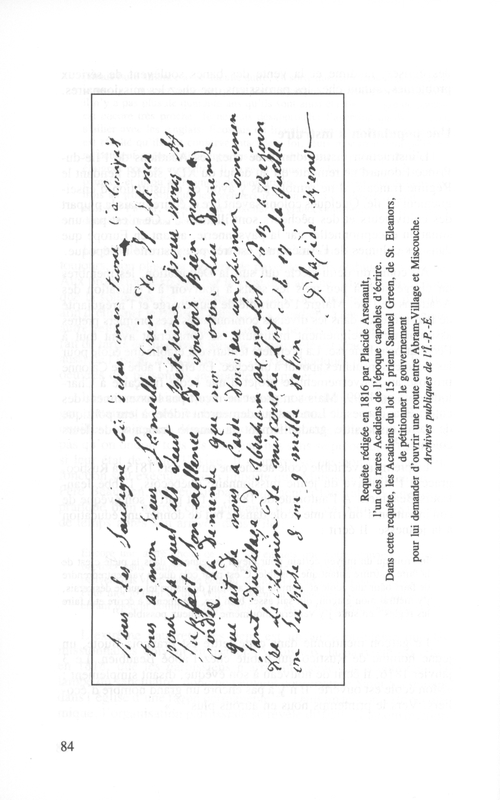 Nous les Sousigné Ci desu mentioné Cè Concist
tous à mon Sieur Samuelle Grin de St Elenes
pour la quel ils Seut Petitioné pour nous Sy
Son excellence de vouloir Bien nous a
Corder la demende que nous oson lui demende
que ait de nous a Caide douveir un chemin Comman
tant du vilage d'Abbraham ayens Lot No 15 a rejoin
dre le chemin de miscouche Lot No 16 17 la quelle
on Supose 8 ou 9 mille selon
Plaçide arseno
Requête rédigée en 1816 par Placide Arsenault,
l'un des rares Acadiens de l'époque capables d'écrire.
Dans cette requête, les Acadiens du lot 15 prient Samuel Green, de St. Eleanors,
de pétitionner le gouvernement
pour lui demander d'ouvrir une route entre Abram-Village et Miscouche.
Archives publiques de l'Î.-P.-É.
84